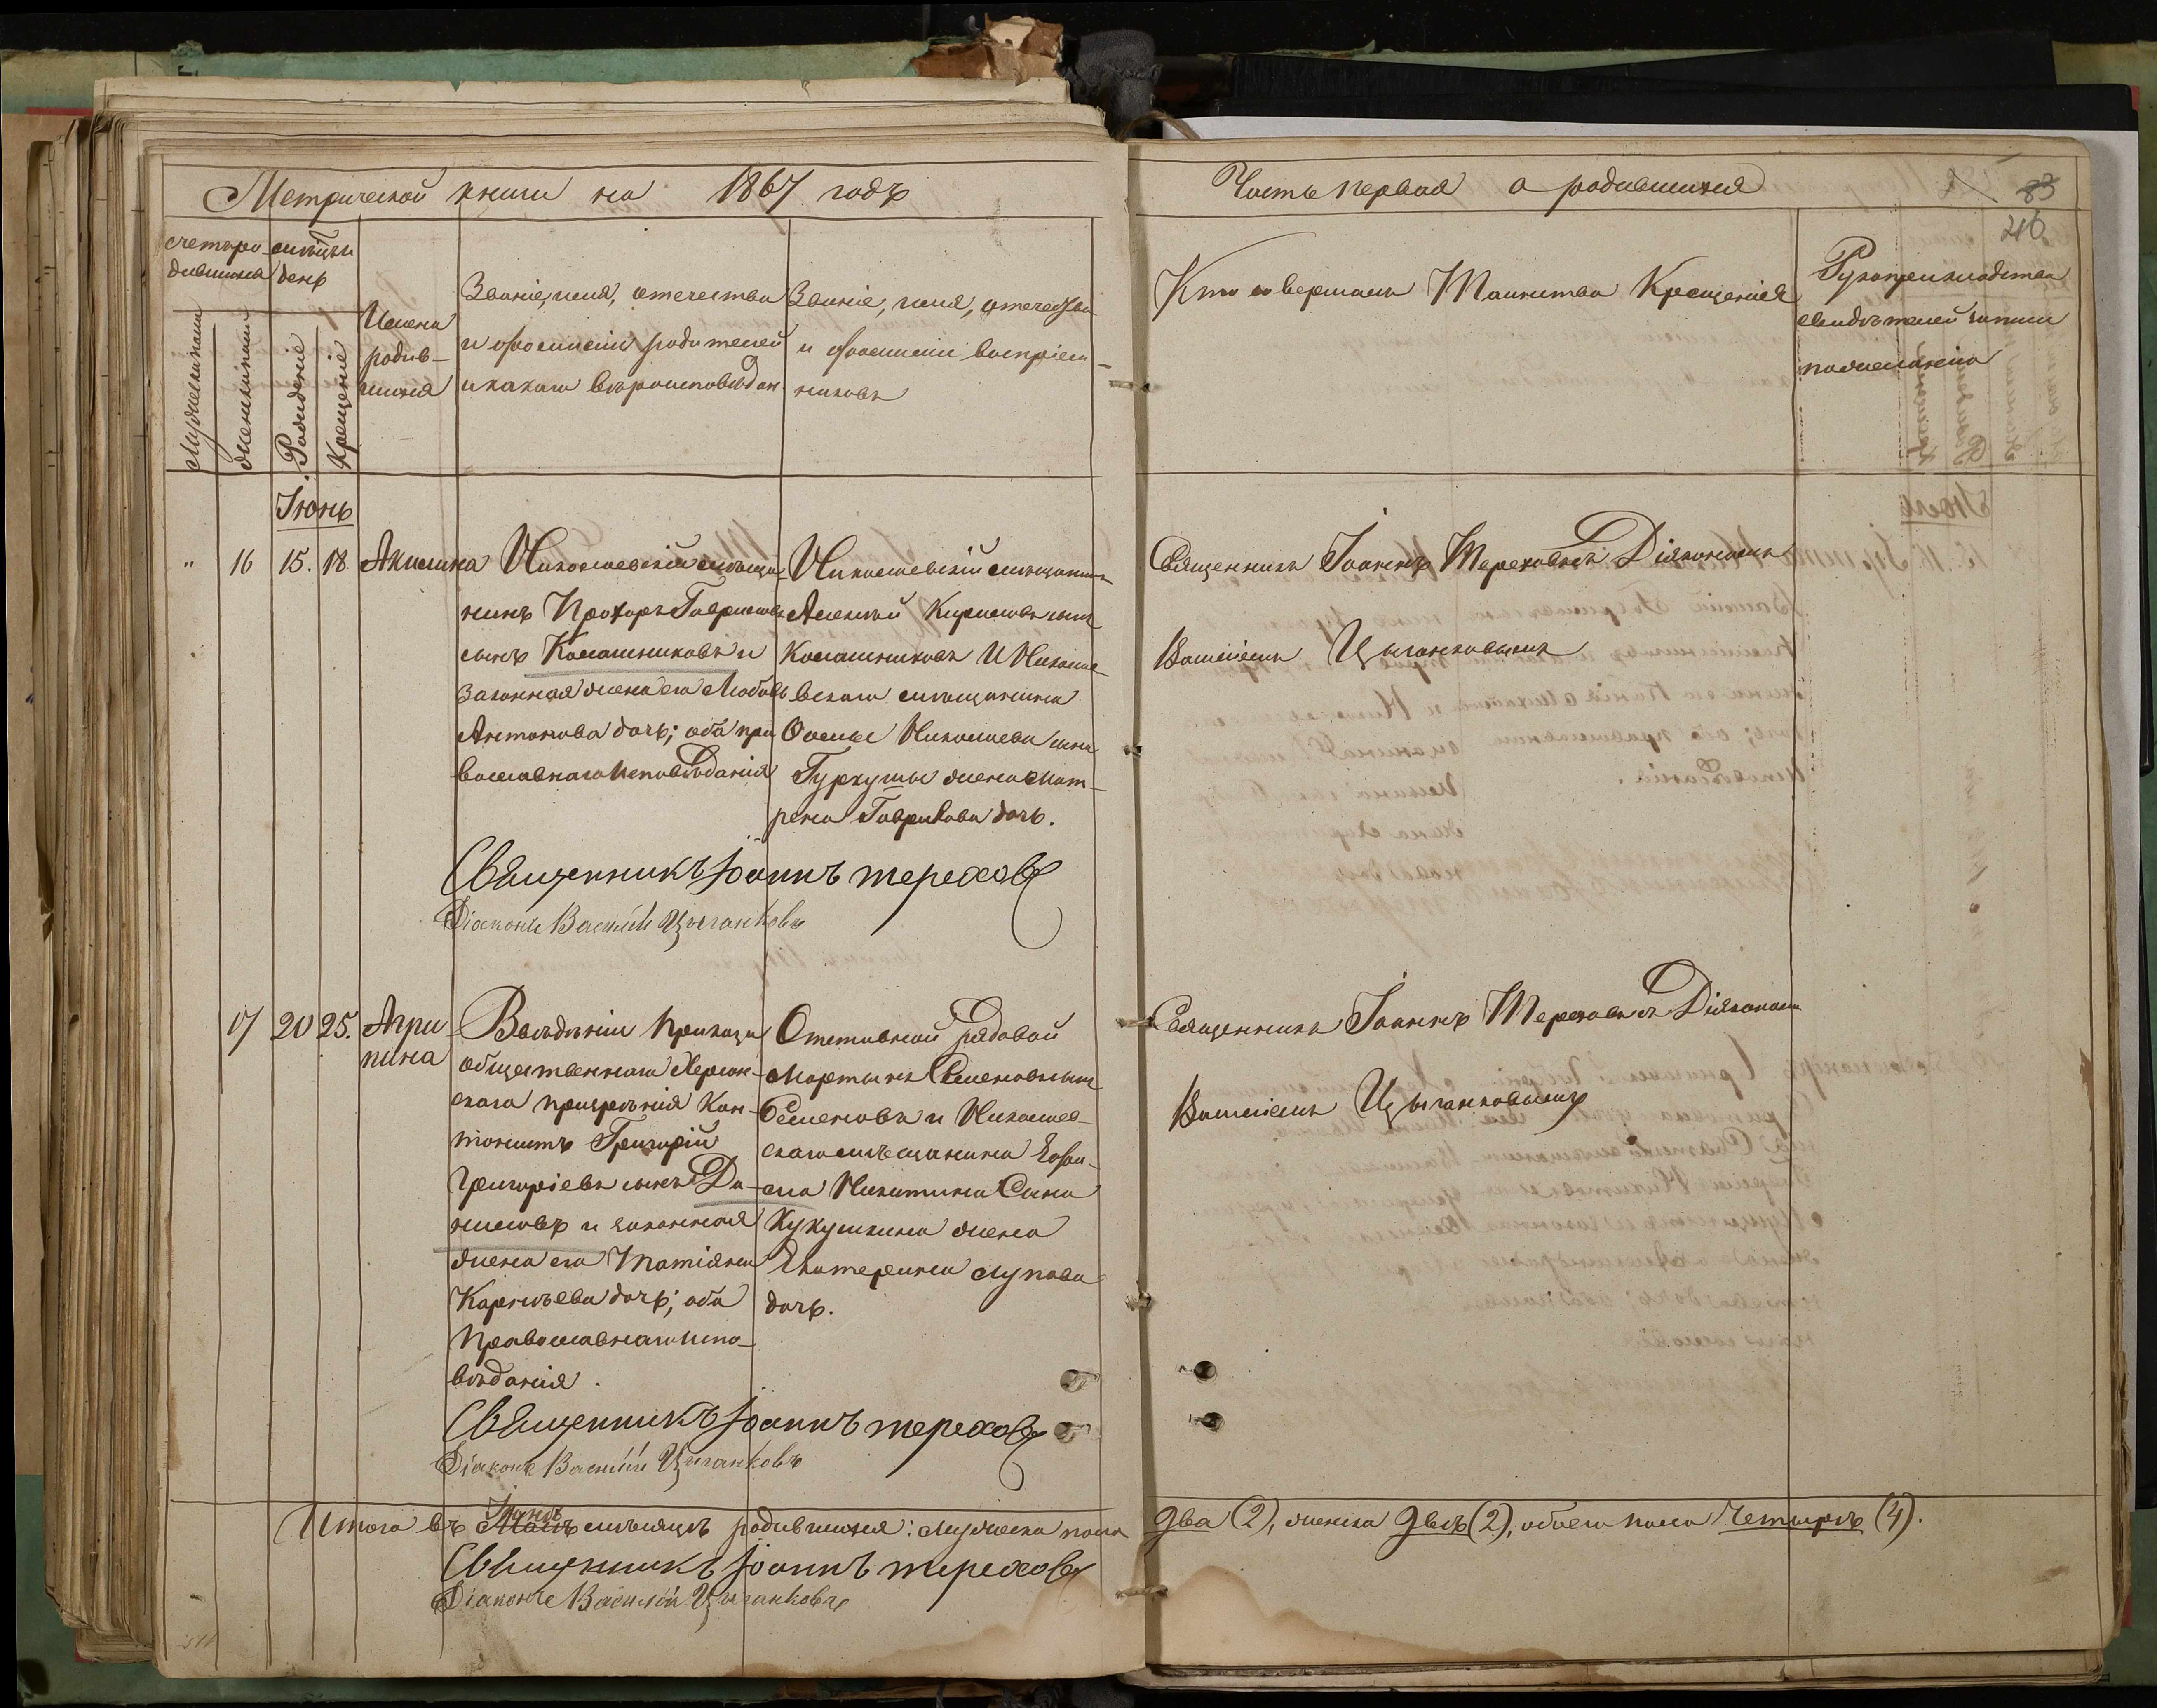 Метрической книги на 1867 годъ
Часть первая о родившихся
83
216
Счетъ ро-
дившихся
Мѣсяцъ и
день
Мужескаго пола
Женскаго пола
Рожденіе
Крещеніе
Имена
родив-
шихся
Званіе, имя, отечество
и фамилія родителей
и какого вѣроисповѣдан
Званіе, имя, отечество
и фамилія воспріем-
никовъ
Кто совершалъ Таинство Крещенія
Рукоприкладство
свидѣтелей записи
по желанію
Іюнь
" 16 15. 18. Акилина
Николаевскій мѣща-
нинъ Прохоръ Гавриловъ
сынъ Колашниковъ и
законная жена его Любовь
Антонова дочь; оба пра
вославнаго исповѣданія
Николаевскій мѣщанинъ
Алексѣй Кириловъ сынъ
Колашниковъ и Никола-
евскаго мѣщанина
Осипа Николаева сына
жена Мат-
рена Гаврилова дочь.
Священникъ Іоаннъ Тереховъ съ Діякономъ
Василіемъ Цыганковымъ
Священникъ Іоаннъ Тереховъ
Діаконъ Василій Цыганковъ
17 20 25. Агри
пина
Вѣдѣнія Приказа
общественнаго Херсон-
скаго призрѣнія Кан-
тонистъ Григорій
Григоріевъ сынъ Да-
ниловъ и законная
жена его Татіяна
Корнѣева дочь; оба
Православнаго испо-
вѣданія.
Отставной рядовой
Мартынъ Семеновъ сынъ
Семеновъ и Николаев-
скаго мѣщанина
Никитина Сына
Кукушкина жена
Екатерина Лупова
дочь.
Священникъ Іоаннъ Тереховъ съ Діякономъ
Василіемъ Цыганковымъ
Священникъ Іоаннъ Тереховъ
Діаконъ Василій Цыганковъ
Іюнѣ
Итого въ Маѣ мѣсяцѣ родившихся: мужеска пола два (2), женска двѣ (2), обоего пола четыре (4).
Священникъ Іоаннъ Тереховъ
Діаконъ Василій Цыганковъ